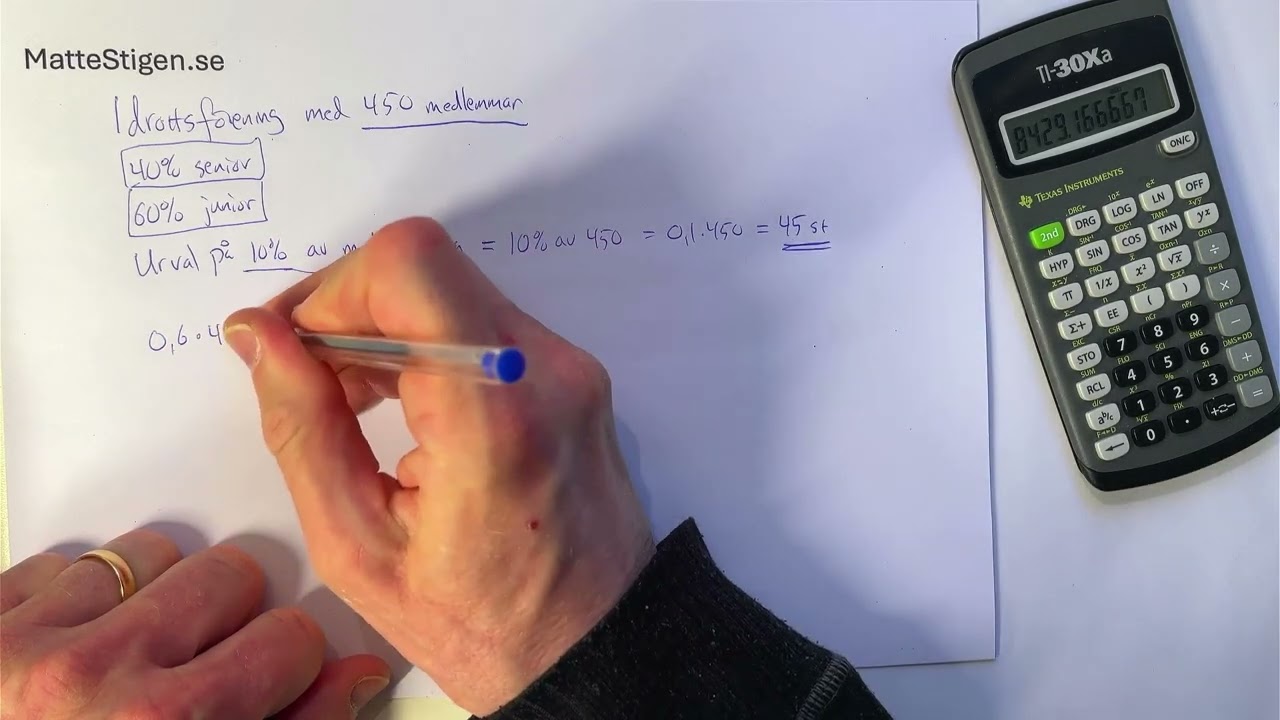 MatteStigen.se
Idrottsförening med 450 medlemmar
40% senior
60% junior
Urval på 10% av = 10% av 450 = 0,1·450 = 45 st
0,6·4
TI-30Xa
8429.166667
TEXAS INSTRUMENTS
ON/C
2nd DRG LOG LN OFF
HYP SIN COS TAN yx
π 1/x x² √x ÷
Σ+ EE ( ) ×
STO 7 8 9 −
RCL 4 5 6 +
ab/c 1 2 3 =
0 .